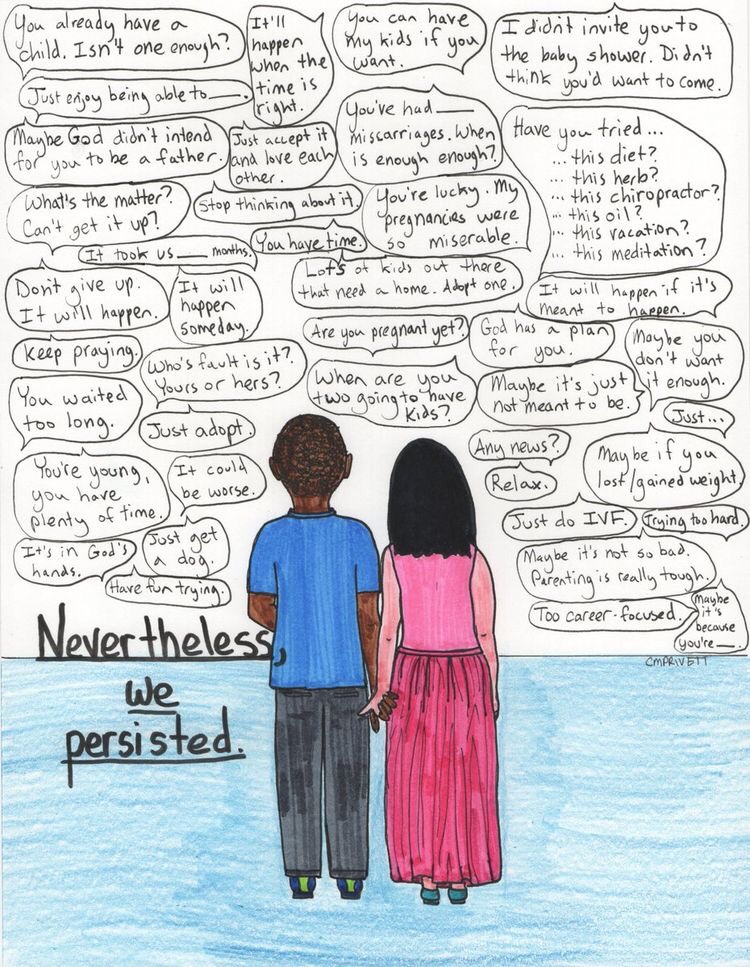 You already have a
child. Isn't one enough?
It'll
happen
when the
time is
right.
You can have
my kids if you
want.
I didn't invite you to
the baby shower. Didn't
think you'd want to come.
Just enjoy being able to____.
Maybe God didn't intend
for you to be a father.
Just accept it
and love each
other.
You've had ____
miscarriages. When
is enough enough?
Have you tried...
... this diet?
... this herb?
... this chiropractor?
... this oil?
... this vacation?
... this meditation?
What's the matter?
Can't get it up?
Stop thinking about it.
You're lucky. My
pregnancies were
so miserable.
It took us ____ months.
You have time.
Lots of kids out there
that need a home. Adopt one.
Don't give up.
It will happen.
It will
happen
someday.
It will happen if it's
meant to happen.
Are you pregnant yet?
God has a plan
for you.
Maybe you
don't want
it enough.
Keep praying.
Who's fault is it?
Yours or hers?
When are you
two going to have
kids?
Maybe it's just
not meant to be.
You waited
too long.
Just adopt.
Just...
Any news?
Maybe if you
lost/gained weight.
You're young,
you have
plenty of time.
It could
be worse.
Relax.
Just do IVF.
Trying too hard.
It's in God's
hands.
Just get
a dog.
Have fun trying.
Maybe it's not so bad.
Parenting is really tough.
Too career-focused.
Maybe
it's
because
you're ___.
Nevertheless,
we
persisted.
CMPRIVETT